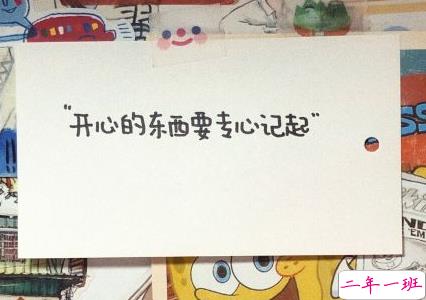 “开心的东西要专心记起”
二年一班